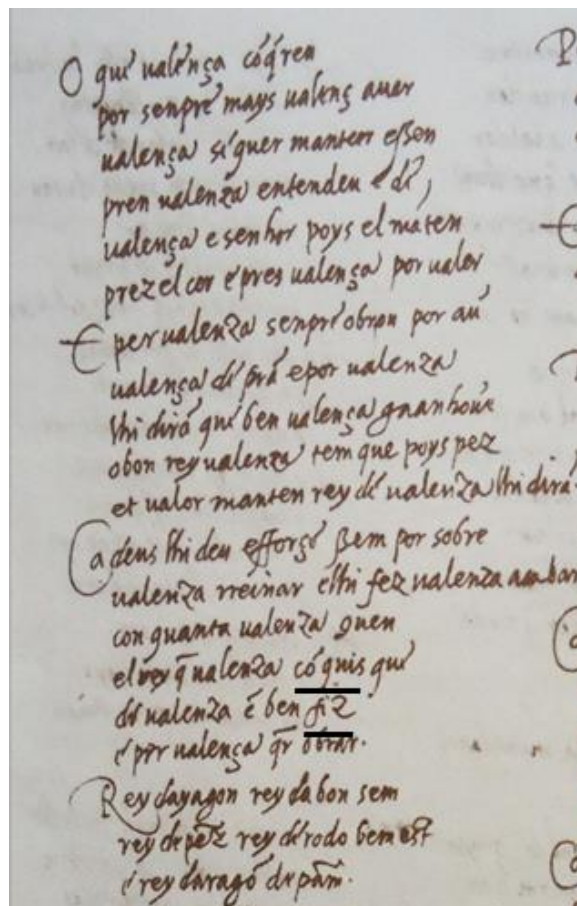 O que ualença cõq̃ren
por senpre mays ualenç auer
ualença se quer manten essen
pren ualenza entendeu e di,
ualença e senhor poys el maten
prez el cor e pres ualença por ualer
E per ualenza senpre obron por au
ualença de prã epor ualenza
lhi dirã que ben ualença gaanhou
obon rey ualenza tem que poys pez
et ualor manten rey de ualenza lhi dirã
Ca deus lhi deu efforçe ssem por sobre
ualenza rreinar elhi fez ualenza
con quanta ualenza guen
el rey q̃ ualenza cõquis que
de ualenza ẽ ben fiz
e per ualença q̃r obrar.
Rey dayagon rey da bon sem
rey de pez rey de todo bem est
e rey daragõ de pam.